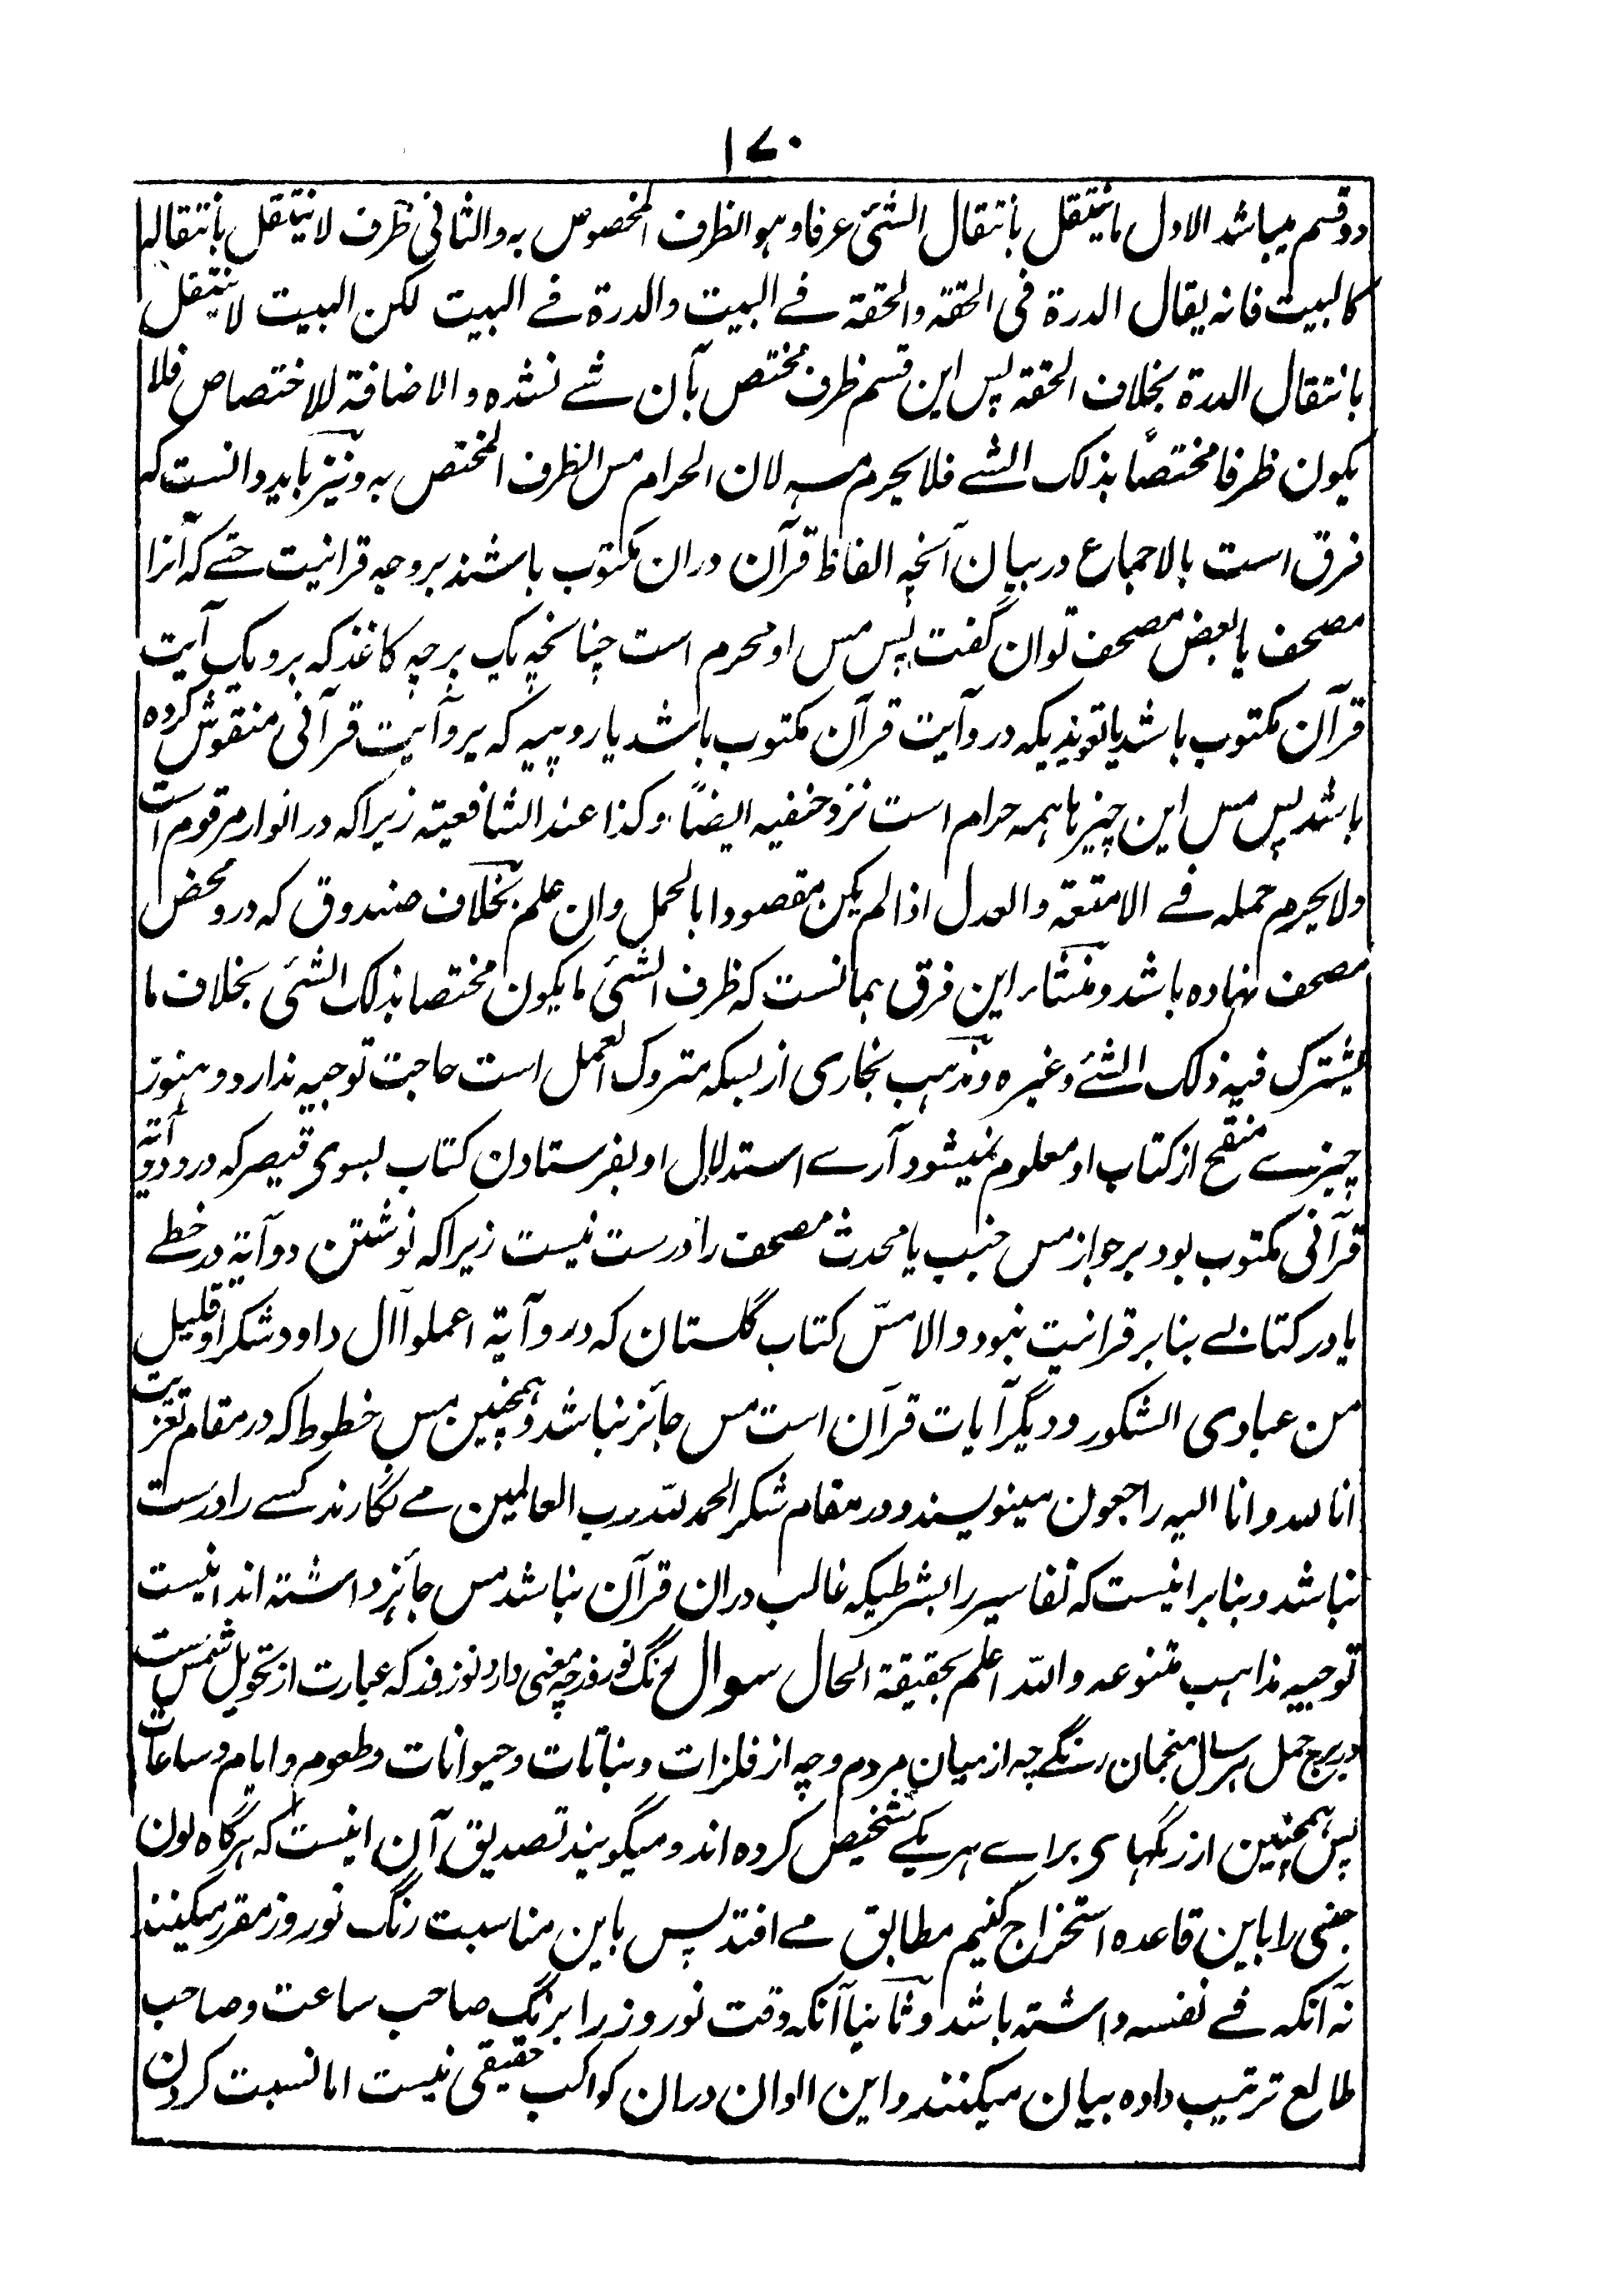 ۱۷۰
دو قسم میباشد الاول ما ینتقل بانتقال الشئ عرفا و ہو الظرف المخصوص بہ والثانی ظرف لا ینتقل بانتقالہ
کالبیت فانہ یقال الدرة فی الحقة والحقة فے البیت والدرة فے البیت لکن البیت لا ینتقل
بانتقال الدرة بخلاف الحقة پس این قسم ظرف مختص بآن شے نشدہ والاضافة للاختصاص فلا
یکون ظرفا مختصّا بذلک الشے فلا یحرم مسہ لان الحرام مس الظرف المختص بہ و نیز باید دانست کہ
فرق است بالاجماع در بیان آنچہ الفاظ قرآن دران مکتوب باشند بروجہ قرانیت حتے کہ آنرا
مصحف یا بعض مصحف توان گفت پس مس او محرم است چنانچہ یک پرچہ کاغذ کہ برو یک آیت
قرآن مکتوب باشد یا تعویذیکہ درو آیت قرآن مکتوب باشد یا روپیہ کہ برو آیت قرآنی منقوش کردہ
باشد پس مس این چیزہا ہمہ حرام است نزد حنفیہ ایضاً و کذا عند الشافعیة زیراکہ در انوار مرقوم است
ولا یحرم حملہ فے الامتعة والعدل اذا لم یکن مقصودا بالحمل وان علم بخلاف صندوق کہ درو محض
مصحف نہادہ باشد و منشاء این فرق ہمانست کہ ظرف الشئ ما یکون مختصا بذلک الشئ بخلاف ما
یشترک فیہ ذلک الشئے وغیرہ و مذہب بخاری ازبسکہ متروک العمل است حاجت توجیہ ندارد و ہنوز
چیزے منقح از کتاب او معلوم نمیشود آرے استدلال او بفرستادن کتاب بسوی قیصر کہ درو دو آیتہ
قرآنی مکتوب بود بر جواز مس جنب یا محدث مصحف را درست نیست زیراکہ نوشتن دو آیة در خطے
یا در کتابے بنا بر قرانیت نبود والا مسّ کتاب گلستان کہ درو آیة اعملوا آل داود شکرا و قلیل
من عبادی الشکور و دیگر آیات قرآن است مس جائز نباشد و ہمچنین مس خطوط کہ در مقام تعزیت
انا للہ و انا الیہ راجعون مینویسند و در مقام شکر الحمد للہ رب العالمین مے نگارند کسے را درست
نباشد و بنا برانیست کہ تفاسیر را بشرطیکہ غالب دران قرآن نباشد مس جائز داشتہ اند اینست
توجیہ مذاہب متنوعہ واللہ اعلم بحقیقة الحال سوال رنگ نوروز چہ معنی دارد نوروز کہ عبارت از تحویل شمس ست
در برج حمل ہر سال منجمان رنگے چہ از میان مردم و چہ از فلزات و نباتات و حیوانات و طعوم و ایام و ساعات
پس ہمچنین از رنگہای براے ہر یکے تشخیص کردہ اند و میگویند تصدیق آن اینست کہ ہرگاہ لون
جنسی را باین قاعدہ استخراج کنیم مطابق مے افتد پس باین مناسبت رنگ نوروز مقرر میکنند
نہ آنکہ فے نفسہ داشتہ باشد و ثانیا آنکہ وقت نوروز را برنگ صاحب ساعت و صاحب
طالع ترتیب دادہ بیان میکنند و این الوان دران کواکب حقیقی نیست اما نسبت کردن